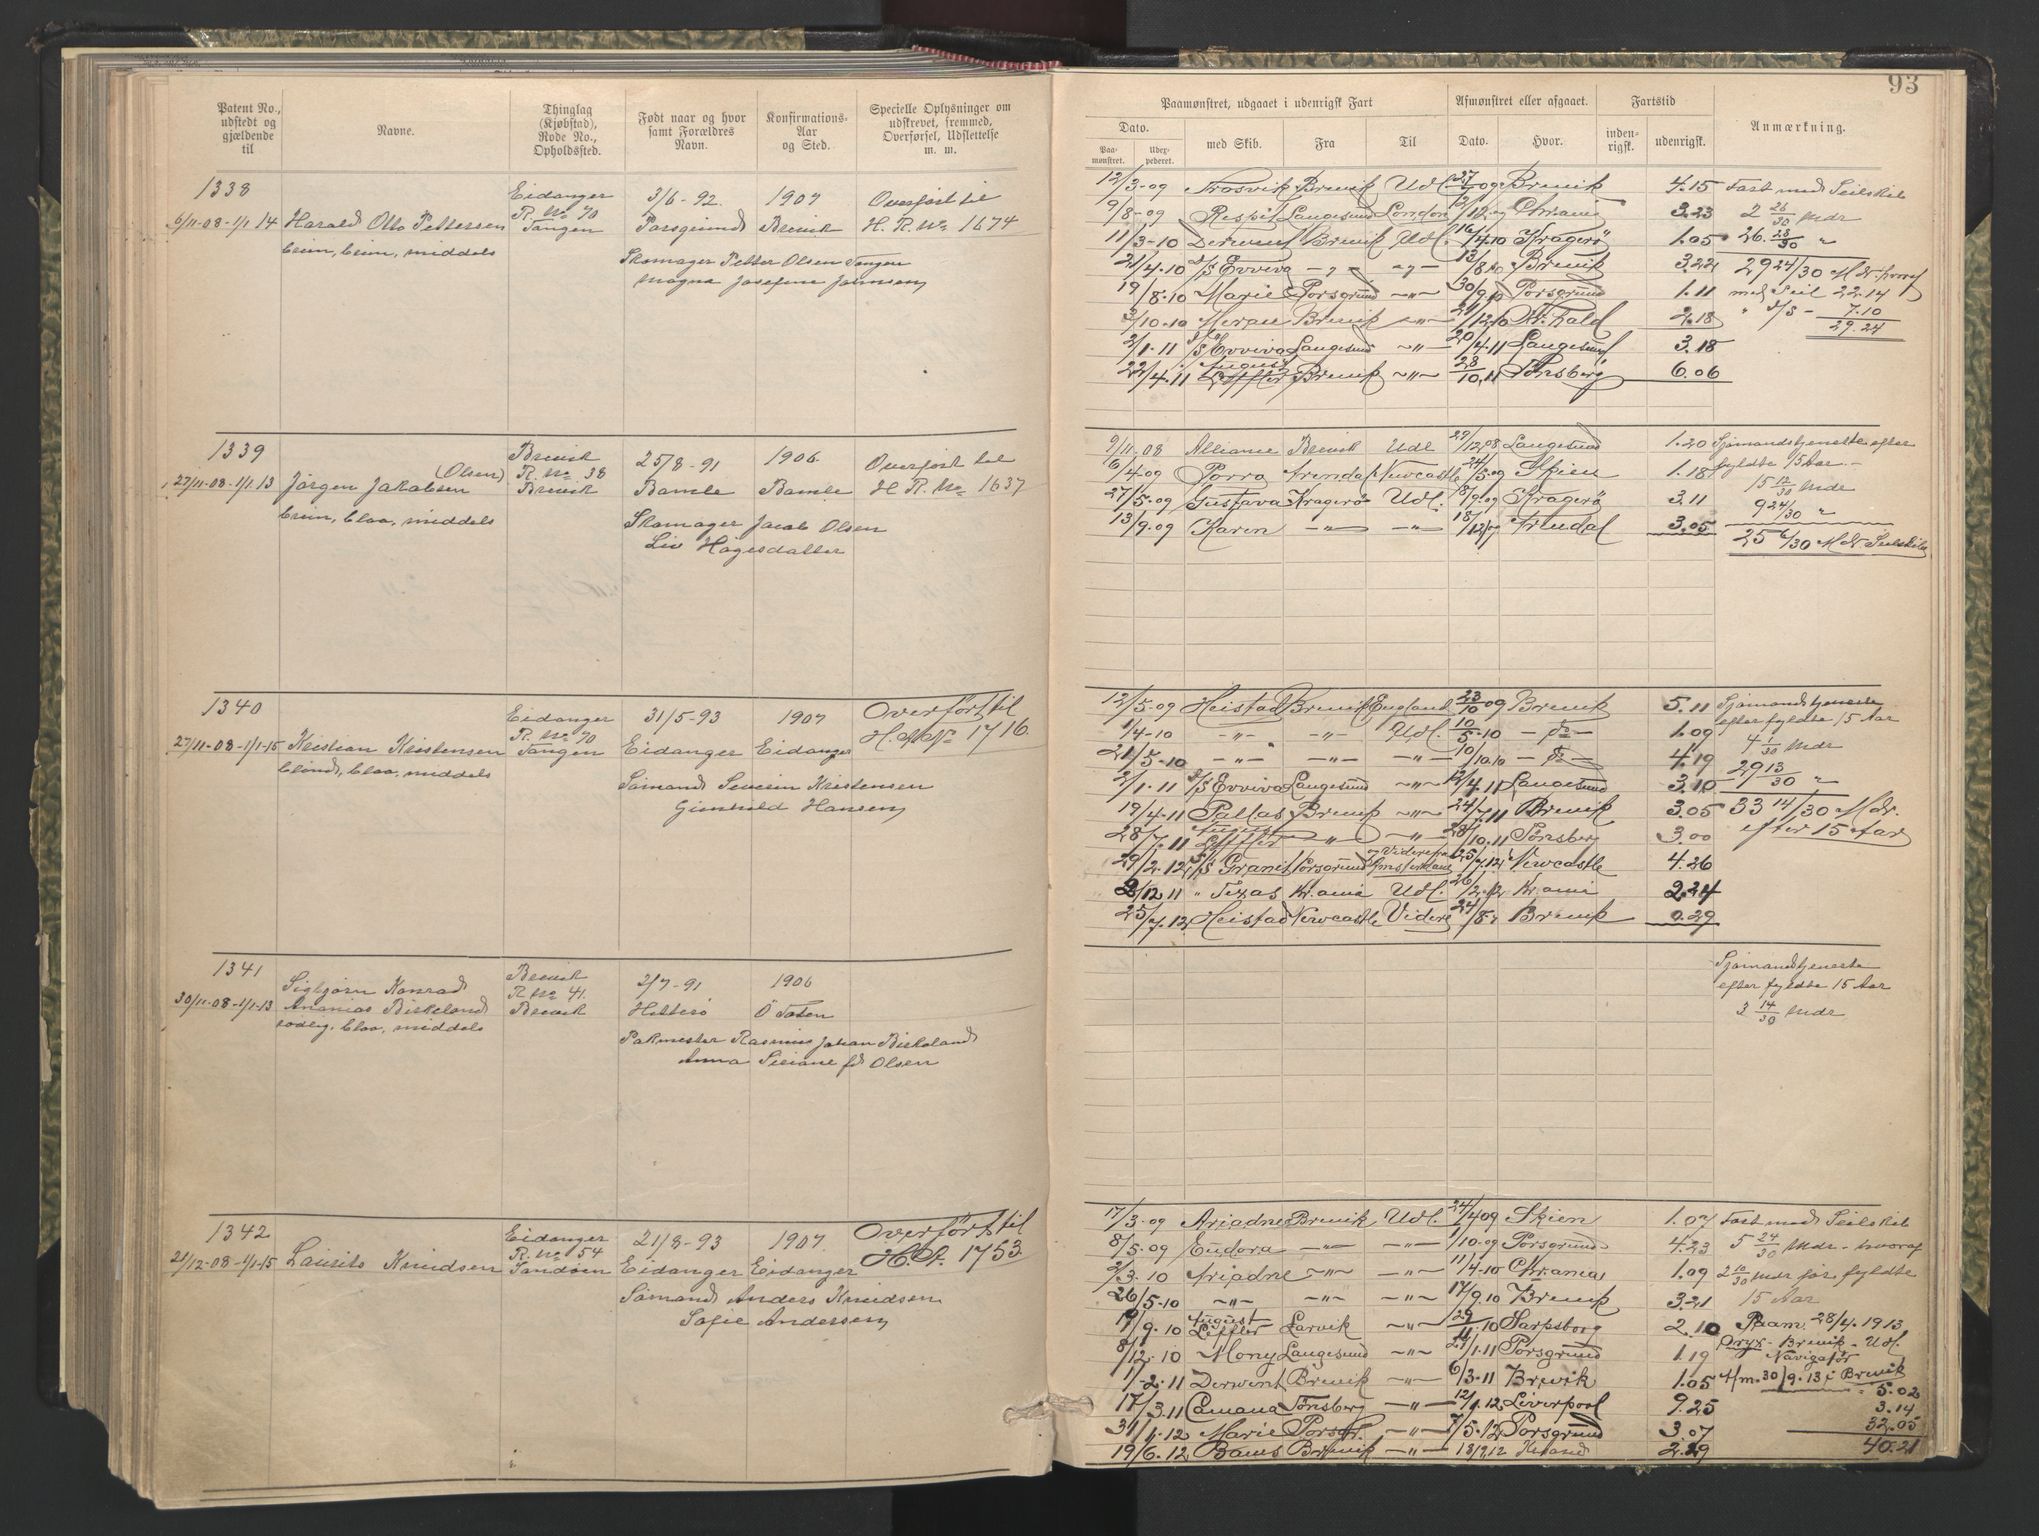 93
Patent No., udstedt og gjældende til
Navne.
Thinglag (Kjøbstad), Rode No., Opholdssted.
Født naar og hvor samt Forældres Navn.
Konfirmations-Aar og Sted.
Specielle Oplysninger om udskrevet, fremmed, Overførsel, Udslettelse m. m.
Paamønstret, udgaaet i udenrigsk Fart
Afmønstret eller afgaaet.
Fartstid
Anmærkning.
Dato.
Paa-mønstret.
Udex-pederet.
med Skib.
Fra
Til
Dato.
Hvor.
inden-rigsk.
udenrigsk.
1338
6/11-08-1/1 14 Harald Otto Pettersen
brun, brun, middels
Eidanger
R. No 70
Tangen
3/6-92.
Porsgrund
1907
Brevik
Overført til
H. R. No 1674
Skomager Petter Olsen Tangen
Magna Josefine Johnsen
12/3-09 Trosvik Brevik Udl. 27/7 09 Brevik 4.15 Fart med Seilskib
9/8-09 Respit Langesund London 2/12 09 Chrania 3.23 2 26/30 Mdr
11/3-10 Derwent Brevik Udl. 16/4.10 Kragerø 1.05 26. 28/30 "
21/4.10 D/S Evviva -"- -"- 13/8 10 Brevik 3.22 29 24/30 Mdr. hvoraf
19/8.10 Marie Porsgrund -"- 30/9.10 Porsgrund 1.11 med Seil 22.14
3/10-10 Meran Brevik -"- 21/12 10 Fr.hald 2.18 " D/S - 7.10
29.24
2/1.11 D/S Evviva Langesund -"- 20/4.11 Langesund 3.18
22/4.11 August Leffler Brevik -"- 28/10.11 Tønsberg 6.06
1339
27/11-08-1/1 13 Jørgen Jakobsen (Olsen)
brun, blaa, middels
Brevik
R. No 38
Brevik
25/8-91
Bamle
1906
Bamle
Overført til
H. R. No 1637
Skomager Jacob Olsen
Liv Høgesdatter
9/11.08 Alliance Brevik Udl 29/12.08 Langesund 1.20 Sjømandstjeneste efter
6/4.09 Porra Arendal Newcastle 24/5.09 Skien 1.18 fyldte 15 Aar.-
27/5.09 Gustava Kragerø Udl. 8/9.09 Kragerø 3.11 15 12/30 Mdr
9 24/30 "
13/9.09 Karen -"- -"- 18/12 09 Arendal 3.05
25 6/30 Mdr. Seilskibe
1340
27/11-08-1/1-15 Kristian Kristensen
blond, blaa, middels
Eidanger
R. No 70
Tangen
31/5-93
Eidanger
1907
Eidanger
Overført til
H. No 1716
Sømand Severin Kristensen
Gunhild Hansen
12/5-09 Heistad Brevik England 23/10 09 Brevik 5.11 Sjømandstjeneste
1/4-10 -"- -"- Udl. 10/5.10 - Do - 1.09 efter fyldte 15 Aar
21/5-10 -"- -"- -"- 10/10.10 - Do - 4.19 4 1/30 Mdr
2/1.11 D/S Evviva Langesund -"- 12/4.11 Langesund 3.10 29 13/30 "
19/4-11 Pallas Brevik -"- 24/7.11 Brevik 3.05 33 14/30 Mdr.
28/7.11 August Leffler " -"- 28/10.11 Tønsberg 3.00 efter 15 Aar
29/2.12 D/S Granit Porsgrund og Videre fra Amsterdam 25/7.12 Newcastle 4.26
2/12.11 " Texas Kr.ania Udl. 26/2.12 Kr.ania 2.24
25/7.12 Heistad Newcastle Videre 24/8. Brevik 0.29
1341
30/11-08-1/1-13 Sigbjørn Konrad
Ananias Birkeland
rødlig, blaa, middels
Brevik
R No 41.
Brevik
2/7-91
Hitterø
1906
Ö Toten
Pakmester Rasmus Johan Birkeland
Anna Sirine fd Olsen
Sjømandstjeneste
efter fyldte 15 Aar
3 14/30 Mdr
1342
21/12-08-1/1-15 Laurits Knudsen
Eidanger
R. No 54
Sandøen
21/8-93
Eidanger
1907
Eidanger
Overført til
H. A. 1753
Sømand Anders Knudsen
Sofie Andersen
17/3-09 Ariadne Brevik Udl. 24/4 09 Skien 1.07 Fart med Seilskib
8/5.09 Eudora -"- -"- 1/10.09 Porsgrund 4.23 5 24/30 Mdr - hvoraf
2/3.10 Ariadne -"- -"- 11/4.10 Chrania 1.09 2 10/30 Mdr før fyldte
26/5-10 -"- -"- -"- 17/9.10 Brevik 3.21 15 Aar
19/9.10 August Leffler Larvik -"- 29/11.10 Sarpsborg 2.10 Paam. 28/4.1913
8/12.10 Mony Langesund -"- 27/1.11 Porsgrund 1.19 Oryx - Brevik - Udl.
Navigatør
1/2.11 Derwent Brevik -"- 6/3.11 Brevik 1.05 Afm. 30/9.13 i Brevik
5.02
17/3.11 Camana Tønsberg -"- 12/1.12 Liverpool 9.25 3.14
31/1.12 Marie Porsgr. -"- 7/5.12 Porsgrund 3.07 32.05
19/6.12 Bams Brevik -"- 18/9 12 2.29 40.21